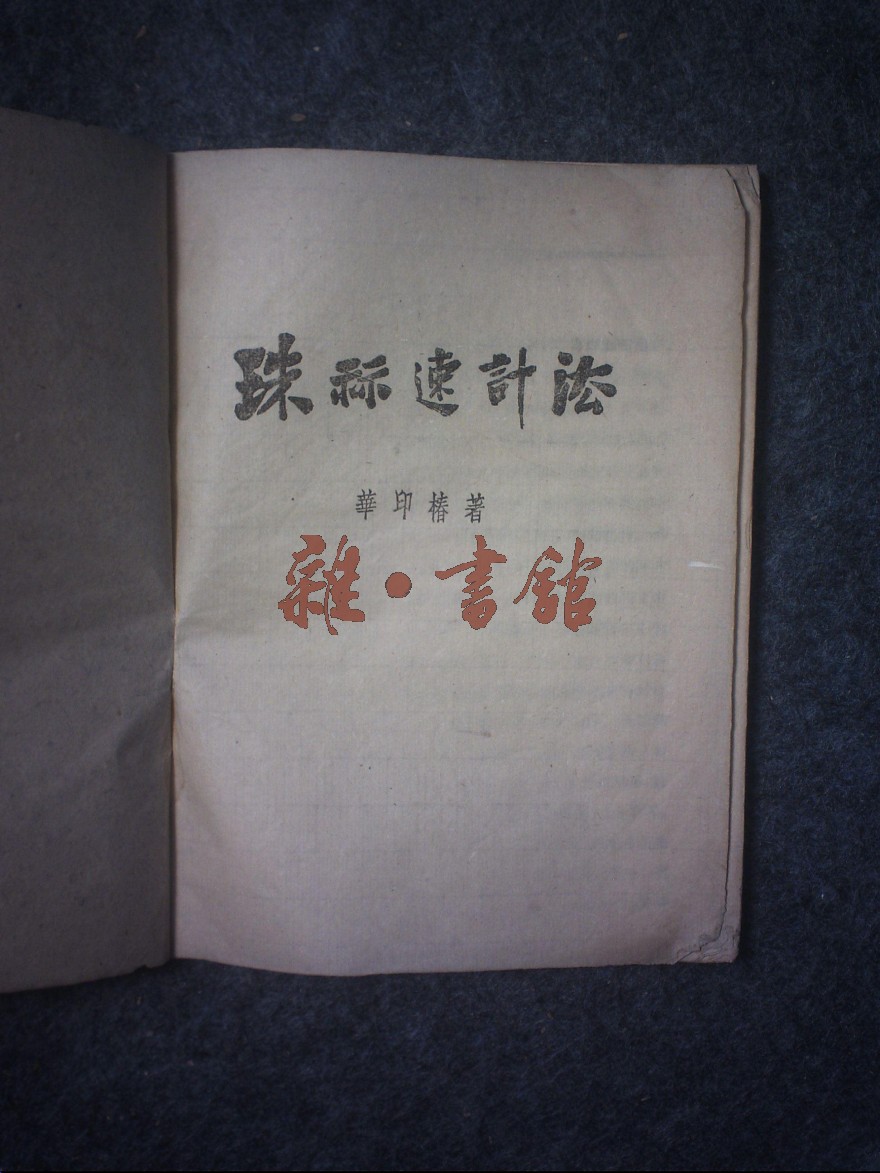 珠祘速計法
華印椿著
雜·書館